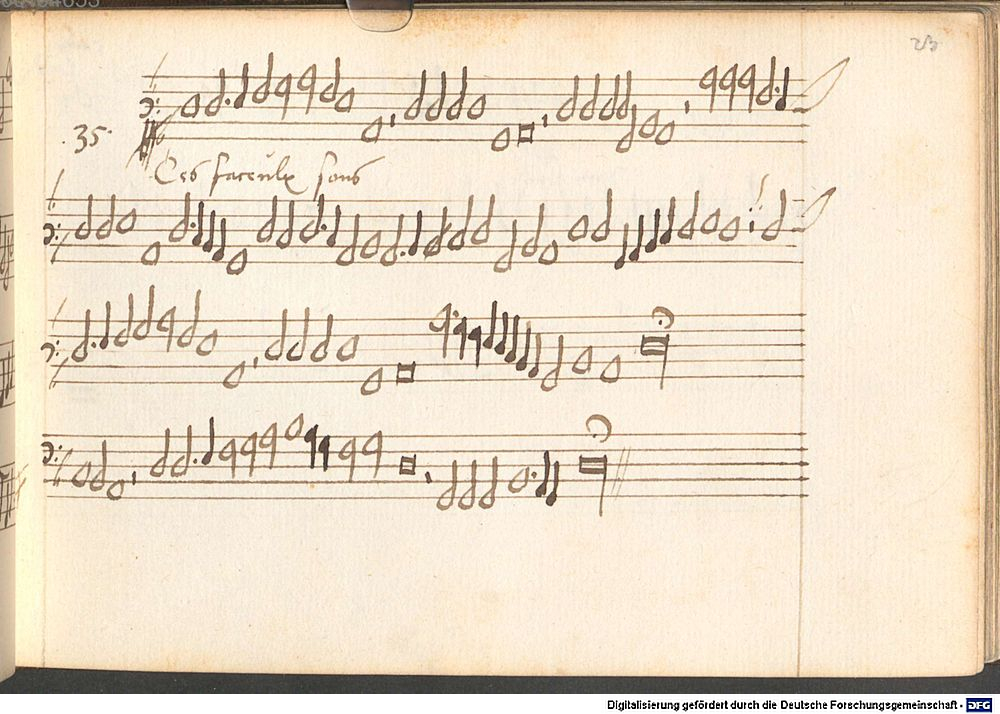 35.
Ces faceulx sons
Digitalisierung gefördert durch die Deutsche Forschungsgemeinschaft - DFG